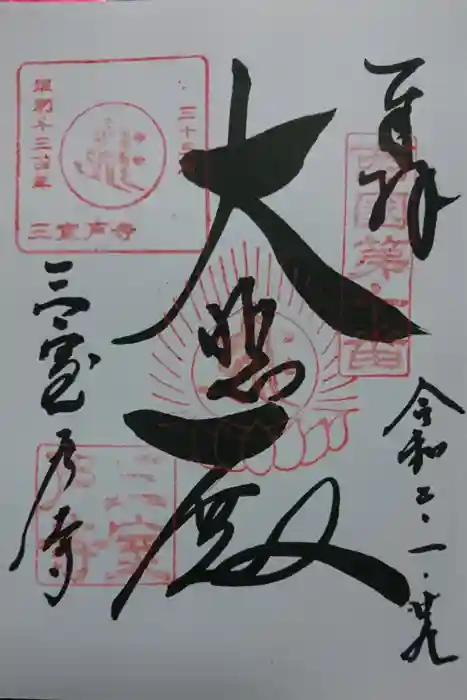 奉拝
西国第十番
令和二・一・廿九
大悲殿
草創千三百年
三室戸寺
三室戸寺
三室戸寺